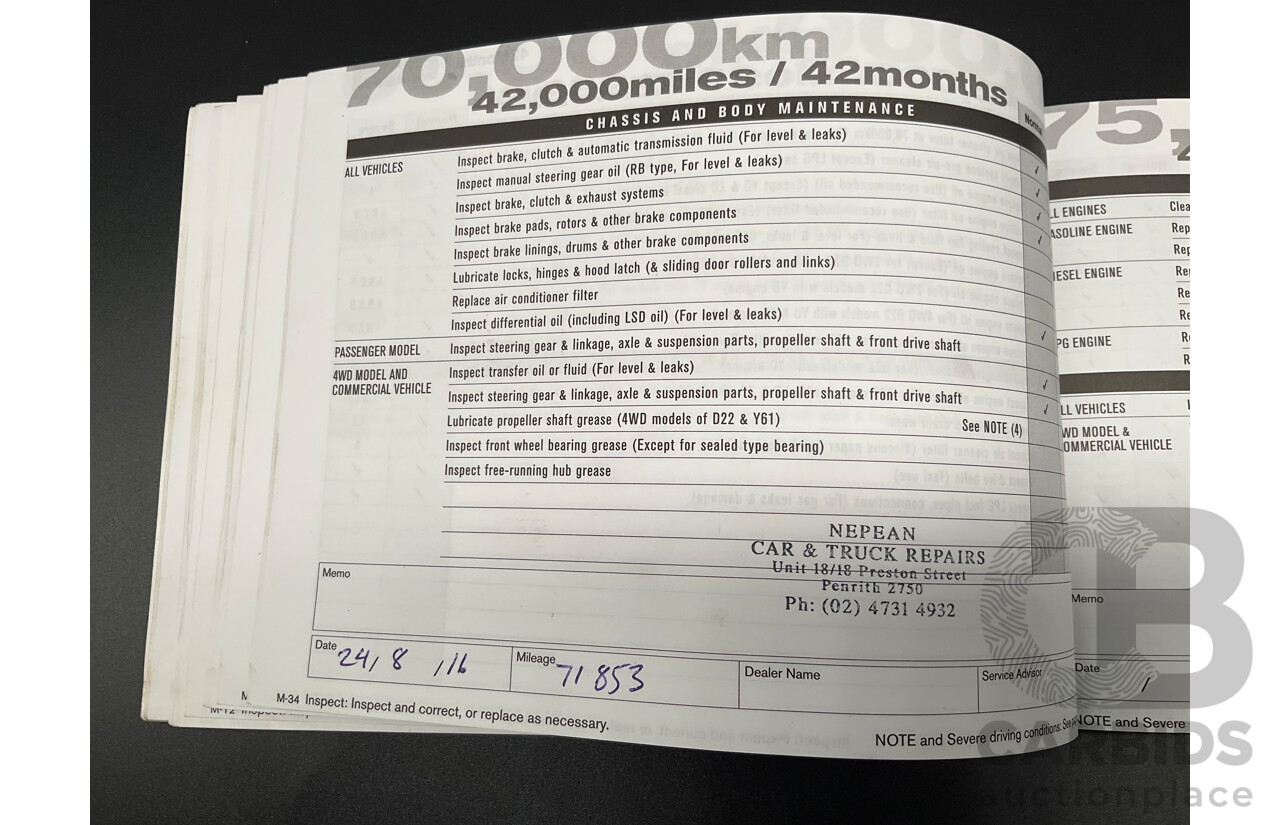 70,000km
42,000miles / 42months
CHASSIS AND BODY MAINTENANCE
ALL VEHICLES
Inspect brake, clutch & automatic transmission fluid (For level & leaks)
Inspect manual steering gear oil (RB type, For level & leaks)
Inspect brake, clutch & exhaust systems
Inspect brake pads, rotors & other brake components
Inspect brake linings, drums & other brake components
Lubricate locks, hinges & hood latch (& sliding door rollers and links)
Replace air conditioner filter
Inspect differential oil (including LSD oil) (For level & leaks)
PASSENGER MODEL
Inspect steering gear & linkage, axle & suspension parts, propeller shaft & front drive shaft
4WD MODEL AND
COMMERCIAL VEHICLE
Inspect transfer oil or fluid (For level & leaks)
Inspect steering gear & linkage, axle & suspension parts, propeller shaft & front drive shaft
Lubricate propeller shaft grease (4WD models of D22 & Y61) See NOTE (4)
Inspect front wheel bearing grease (Except for sealed type bearing)
Inspect free-running hub grease
NEPEAN
CAR & TRUCK REPAIRS
Unit 18/18 Preston Street
Penrith 2750
Ph: (02) 4731 4932
Memo
Date 24/8/16
Mileage 71853
Dealer Name
Service Advisor
M-34 Inspect: Inspect and correct, or replace as necessary.
NOTE and Severe driving conditions:
75,
ENGINES
ENGINE
ENGINE
ENGINE
VEHICLES
MODEL &
VEHICLE
Memo
Date /
NOTE and Severe
CARBIDS
auctionplace